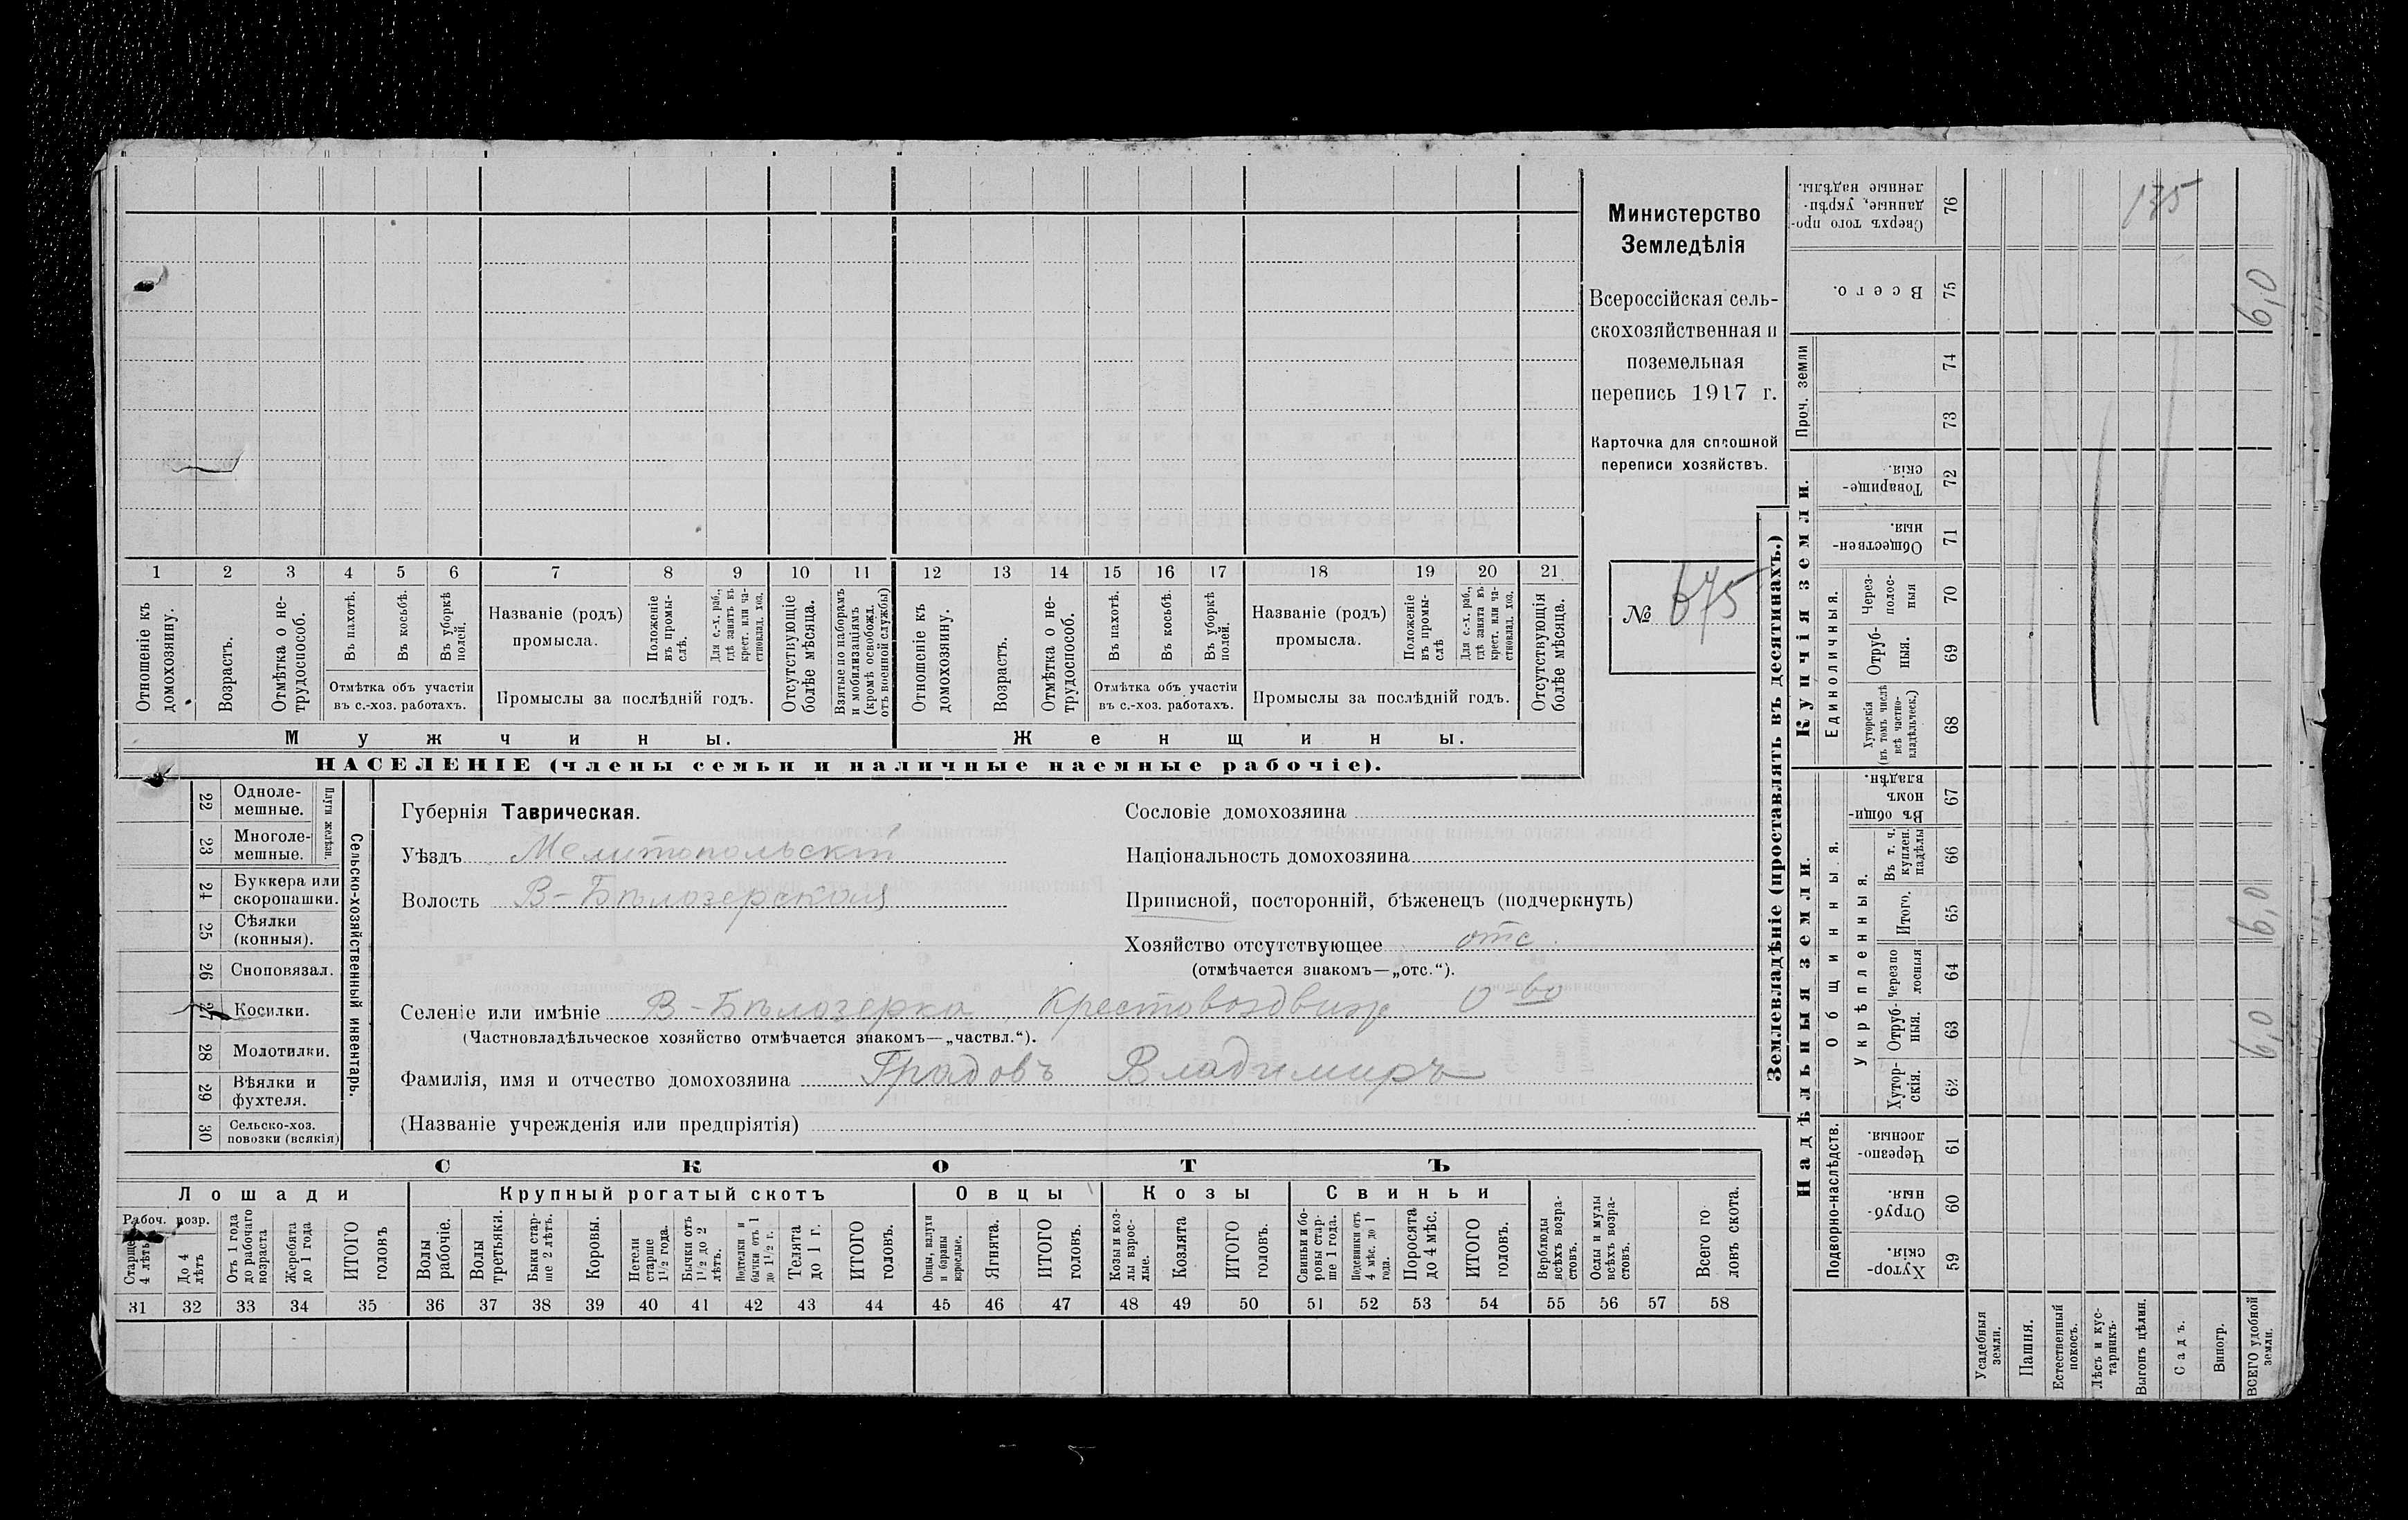 Министерство
Земледѣлія
Всероссійская сель-
скохозяйственная и
поземельная
перепись 1917 г.
Карточка для сплошной
переписи хозяйствъ.
№ 675
1 2 3 4 5 6 7 8 9 10 11 12 13 14 15 16 17 18 19 20 21
Отношеніе къ домохозяину.
Возрастъ.
Отмѣтка о не-трудоспособ.
Въ пахотѣ.
Въ косьбѣ.
Въ уборкѣ полей.
Отмѣтка объ участіи
въ с.-хоз. работахъ.
Названіе (родъ)
промысла.
Положеніе въ промы-слѣ.
Для с.-х. раб., гдѣ занятъ въ крест. или ча-стновлад. хоз.
Промыслы за послѣдній годъ.
Отсутствующіе болѣе мѣсяца.
Взятые по наборамъ и мобилизаціямъ (кромѣ освобожд. отъ военной службы)
Отношеніе къ домохозяину.
Возрастъ.
Отмѣтка о не-трудоспособ.
Въ пахотѣ.
Въ косьбѣ.
Въ уборкѣ полей.
Отмѣтка объ участіи
въ с.-хоз. работахъ.
Названіе (родъ)
промысла.
Положеніе въ промы-слѣ
Для с.-х. раб., гдѣ занята въ крест. или ча-стновлад. хоз.
Промыслы за послѣдній годъ.
Отсутствующія болѣе мѣсяца.
Мужчины.
Женщины.
НАСЕЛЕНІЕ (члены семьи и наличные наемные рабочіе).
22 Одноле-мешные.
23 Многоле-мешные.
Плуги желѣзн.
24 Буккера или скоропашки.
25 Сѣялки (конныя).
26 Сноповязал.
27 Косилки.
28 Молотилки.
29 Вѣялки и фухтеля.
30 Сельско-хоз. повозки (всякія)
Сельско-хозяйственный инвентарь.
Губернія Таврическая.
Уѣздъ Мелитопольскій
Волость В-Бѣлозерская
Сословіе домохозяина
Національность домохозяина
Приписной, посторонній, бѣженецъ (подчеркнуть)
Хозяйство отсутствующее отс.
(отмѣчается знакомъ—„отс.“).
Селеніе или имѣніе В-Бѣлозерка Крестовоздвиж О-во
(Частновладѣльческое хозяйство отмѣчается знакомъ—„частвл.“).
Фамилія, имя и отчество домохозяина Градовъ Владимиръ
(Названіе учрежденія или предпріятія)
СКОТЪ
Лошади
Крупный рогатый скотъ
Овцы
Козы
Свиньи
Рабоч. возр.
Старше 4 лѣтъ
До 4 лѣтъ
Отъ 1 года до рабочаго возраста
Жеребята до 1 года
ИТОГО головъ
Волы рабочіе.
Волы третьяки.
Быки стар-ше 2 лѣтъ.
Коровы.
Нетели старше 1½ года.
Бычки отъ 1½ до 2 лѣтъ.
Подтелки и бычки отъ 1 до 1½ г.
Телята до 1 г.
ИТОГО головъ.
Овцы, валухи и бараны взрослые.
Ягнята.
ИТОГО головъ.
Козы и коз-лы взрос-лые.
Козлята
ИТОГО головъ.
Свиньи и бо-ровы стар-ше 1 года.
Подсвинки отъ 4 мѣс. до 1 года.
Поросята до 4 мѣс.
ИТОГО головъ.
Верблюды всѣхъ возра-стовъ.
Ослы и мулы всѣхъ возра-стовъ.
Всего го ловъ скота.
31 32 33 34 35 36 37 38 39 40 41 42 43 44 45 46 47 48 49 50 51 52 53 54 55 56 57 58
Землевладѣніе (проставлять въ десятинахъ.)
Купчія земли.
Надѣльныя земли.
76 Сверхъ того про-данные, укрѣп-ленные надѣлы.
135
75 Всего.
6,0
Проч. земли
74
73
72 Товарище-скія.
71 Обществен-ныя.
Единоличныя.
70 Через-полос-ныя
69 Отруб-ныя.
68 Хуторскія (въ томъ числѣ всѣ частно-владѣльческ.)
Общинныя.
67 Въ общи-номъ владѣн.
Укрѣпленныя.
66 Въ т. ч. куплен. надѣлы
65 Итого.
6,0
64 Черезпо лосныя
63 Отруб-ныя.
6,0
62 Хутор-скія.
Подворно-наслѣдств.
61 Черезпо-лосныя.
60 Отруб-ныя.
59 Хутор-скія.
Усадебныя земли.
Пашня.
Естественный покосъ.
Лѣсъ и кус-тарникъ.
Выгонъ цѣлин.
Садъ.
Виногр.
ВСЕГО удобной земли.